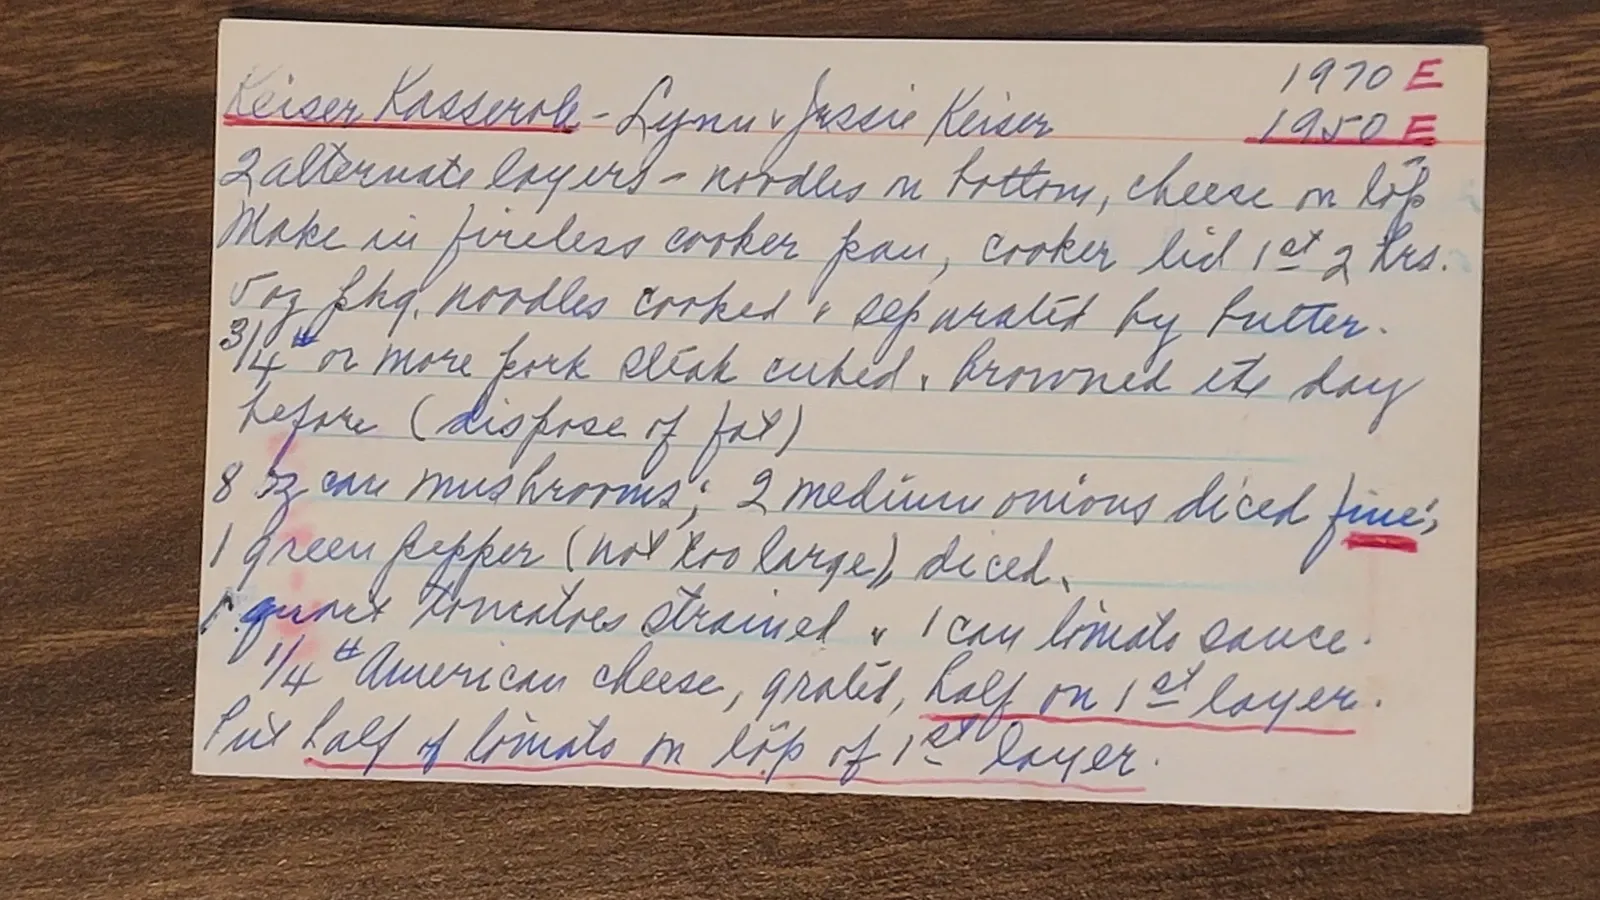 1970 E
Keiser Kasserole - Lynn & Jessie Keiser 1950 E
2 alternate layers - noodles on bottom, cheese on top
Make in fireless cooker pan, cooker lid 1st 2 hrs.
5 oz pkg. noodles cooked & separated by butter.
3/4 # or more pork steak cubed & browned the day
before (dispose of fat)
8 oz can mushrooms; 2 medium onions diced fine;
1 green pepper (not too large), diced.
1 quart tomatoes strained & 1 can tomato sauce.
1/4 # American cheese, grated, half on 1st layer.
Put half of tomato on top of 1st layer.